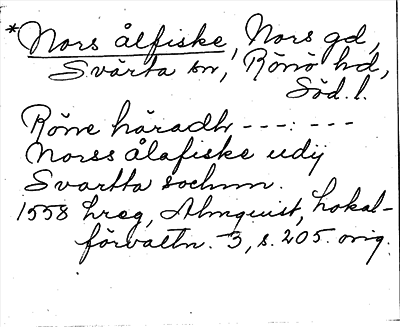 *Nors ålfiske, Nors gd,
Svärta sn, Rönö hd,
Söd. l.
Röne häradh ---:---
Norss ålafiske udij
Svartta sochnn.
1558 hreg, Almquist, Lokal-
förvaltn. 3, s. 205. orig.